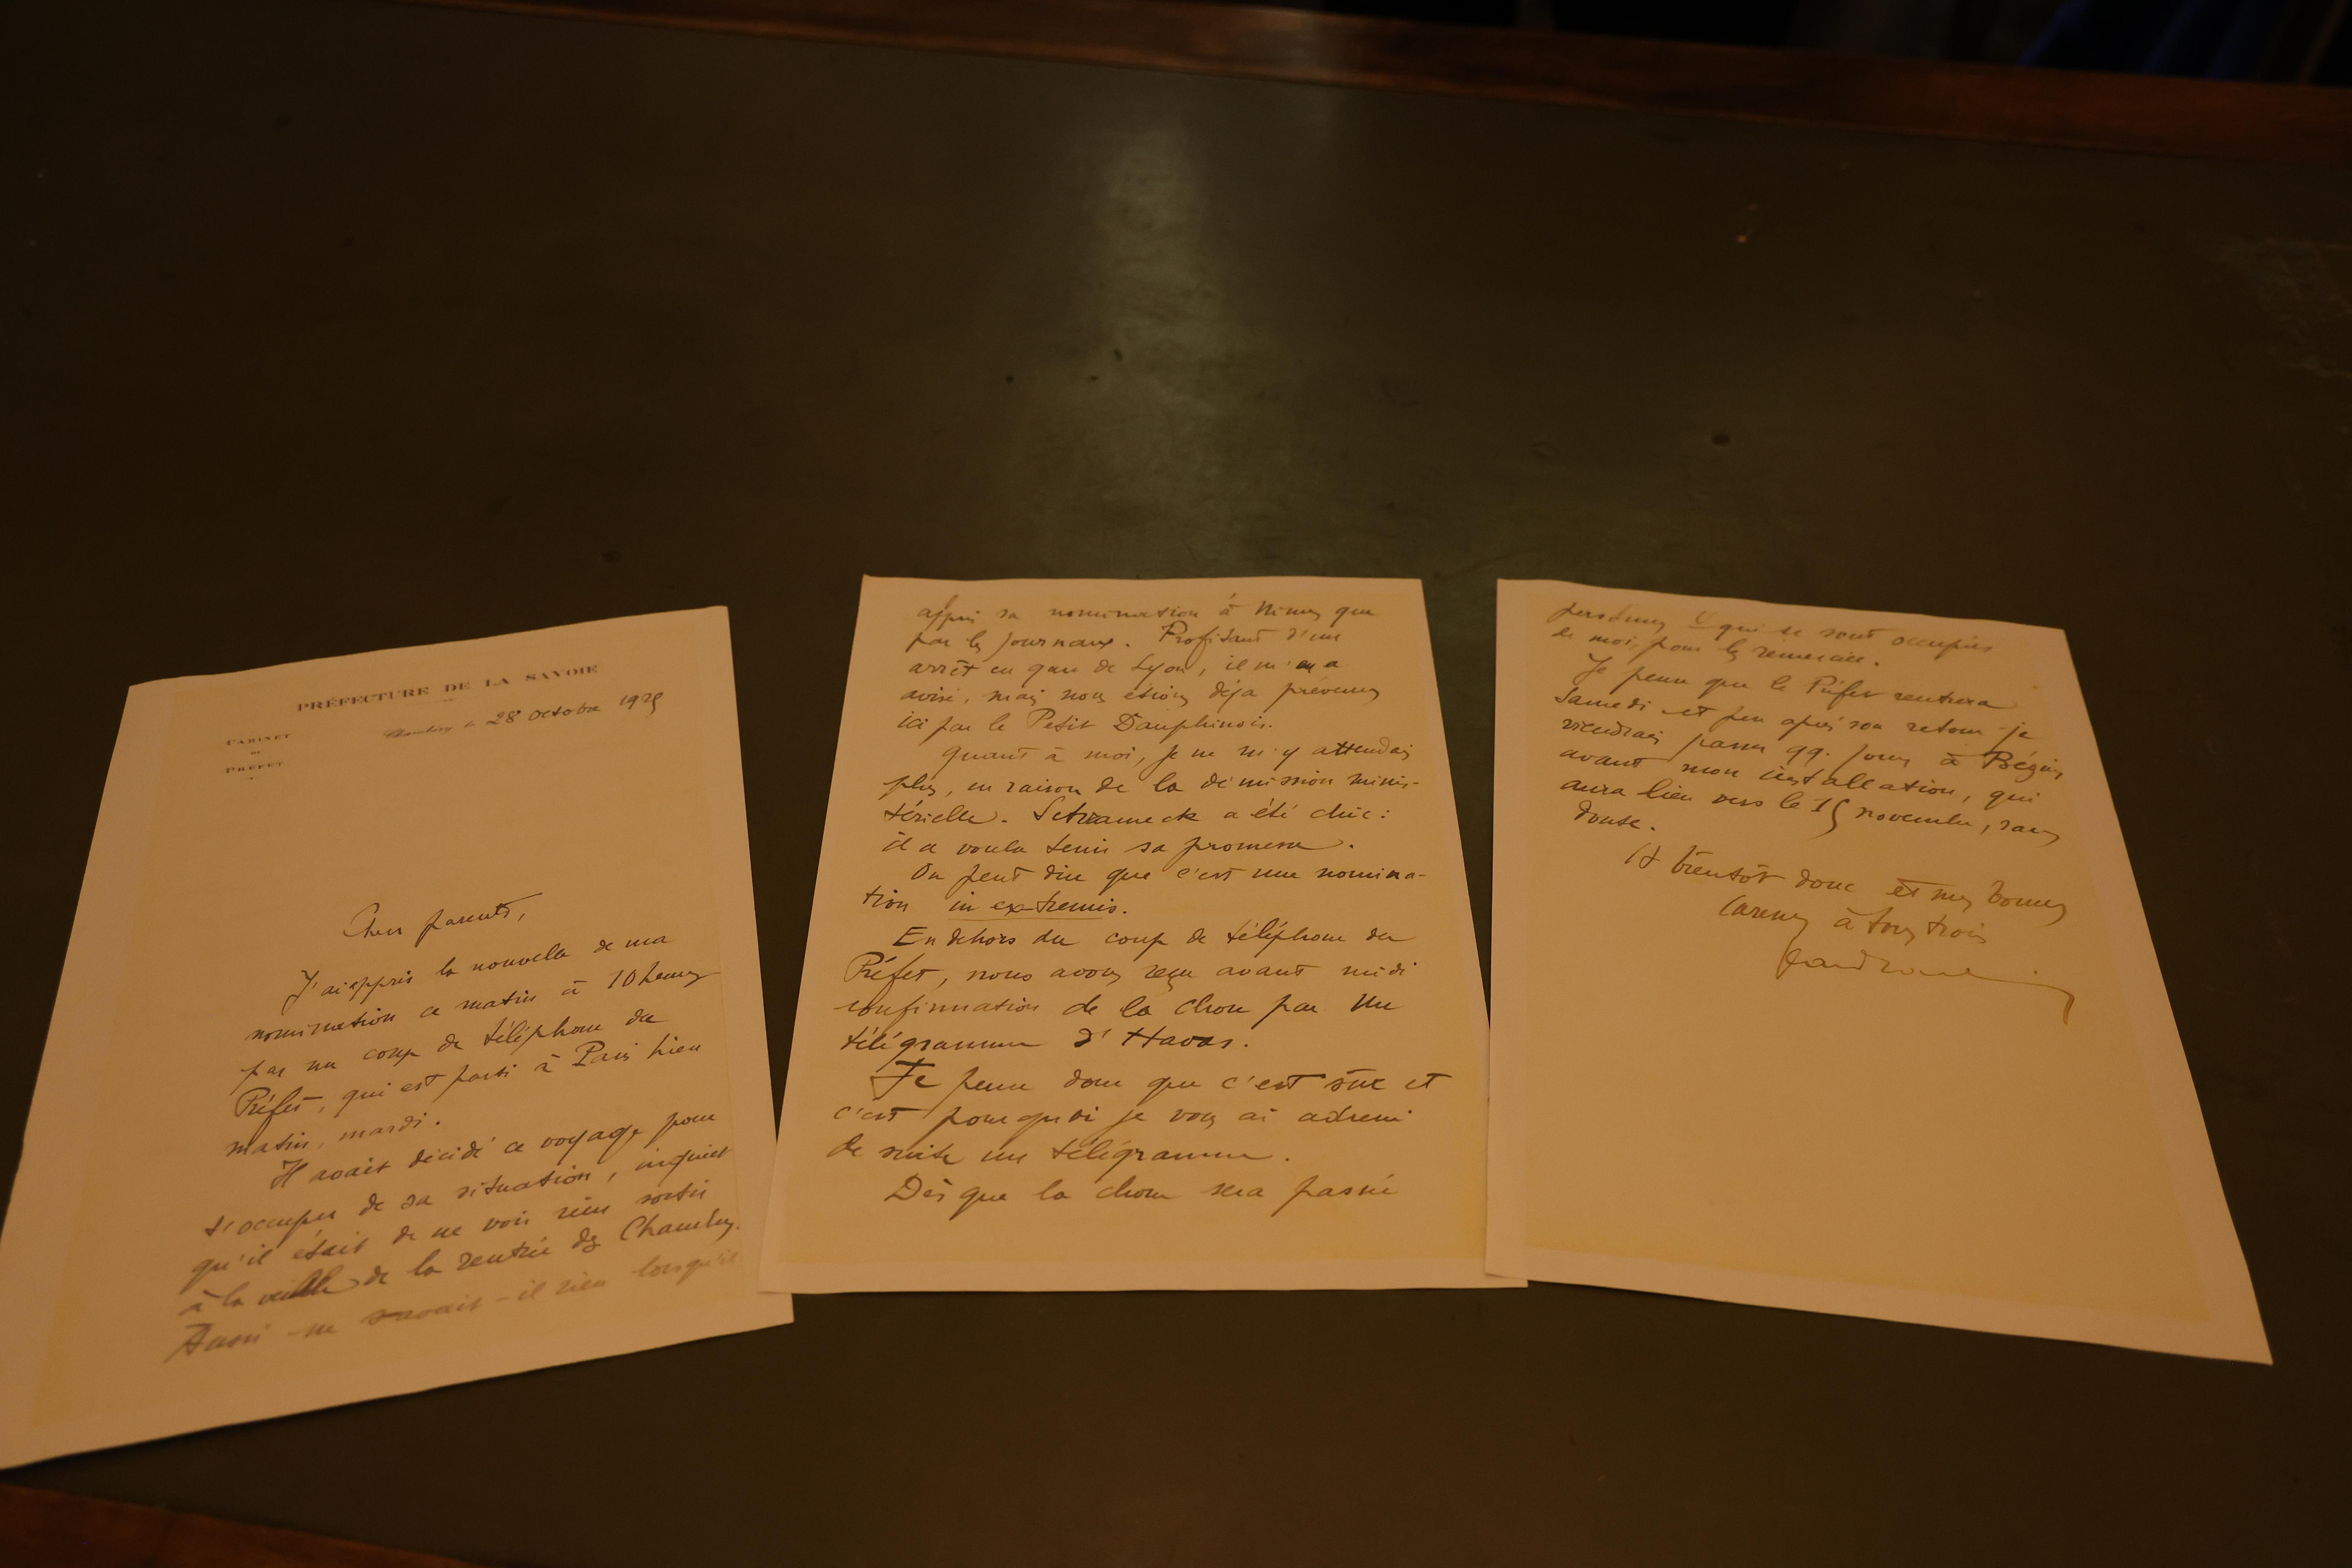 PRÉFECTURE DE LA SAVOIE
CABINET
DU
PRÉFET
Chambéry, le 28 Octobre 1925
Chers parents,
J'ai appris la nouvelle de ma
nomination ce matin à 10 heures
par un coup de téléphone du
Préfet, qui est parti à Paris hier
matin, mardi.
Il avait décidé ce voyage pour
s'occuper de sa situation, inquiet
qu'il était de ne voir rien sortir
à la veille de la rentrée des Chambres.
Aussi ne savait-il rien lorsqu'il
appris sa nomination à Nimes que
par les journaux. Profitant d'un
arrêt en gare de Lyon, il m'en a
avisé, mais nous étions déja prévenus
ici par le Petit Dauphinois.
Quant à moi, je ne m'y attendais
plus, en raison de la démission minis-
térielle. Schrameck a été chic :
il a voulu tenir sa promesse.
On peut dire que c'est une nomina-
tion in extremis.
En dehors du coup de téléphone du
Préfet, nous avons reçu avant midi
confirmation de la chose par un
télégramme d'Havas.
Je pense donc que c'est sûr et
c'est pourquoi je vous ai adressé
de suite un télégramme.
Dès que la chose sera passée
personnes qui se sont occupées
de moi, pour les remercier.
Je pense que le Préfet rentrera
Samedi et peu après son retour je
viendrai passer qq. jours à Béziers
avant mon installation, qui
aura lieu vers le 15 novembre, sans
doute.
A bientôt donc et mes bonnes
caresses à tous trois